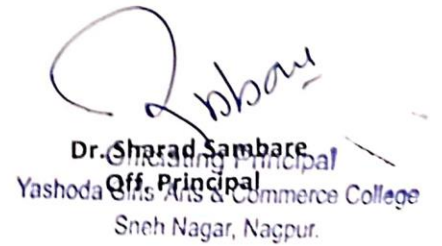 Dr. Sharad Sambare
Officiating Principal
Off. Principal
Yashoda Girls Arts & Commerce College
Sneh Nagar, Nagpur.